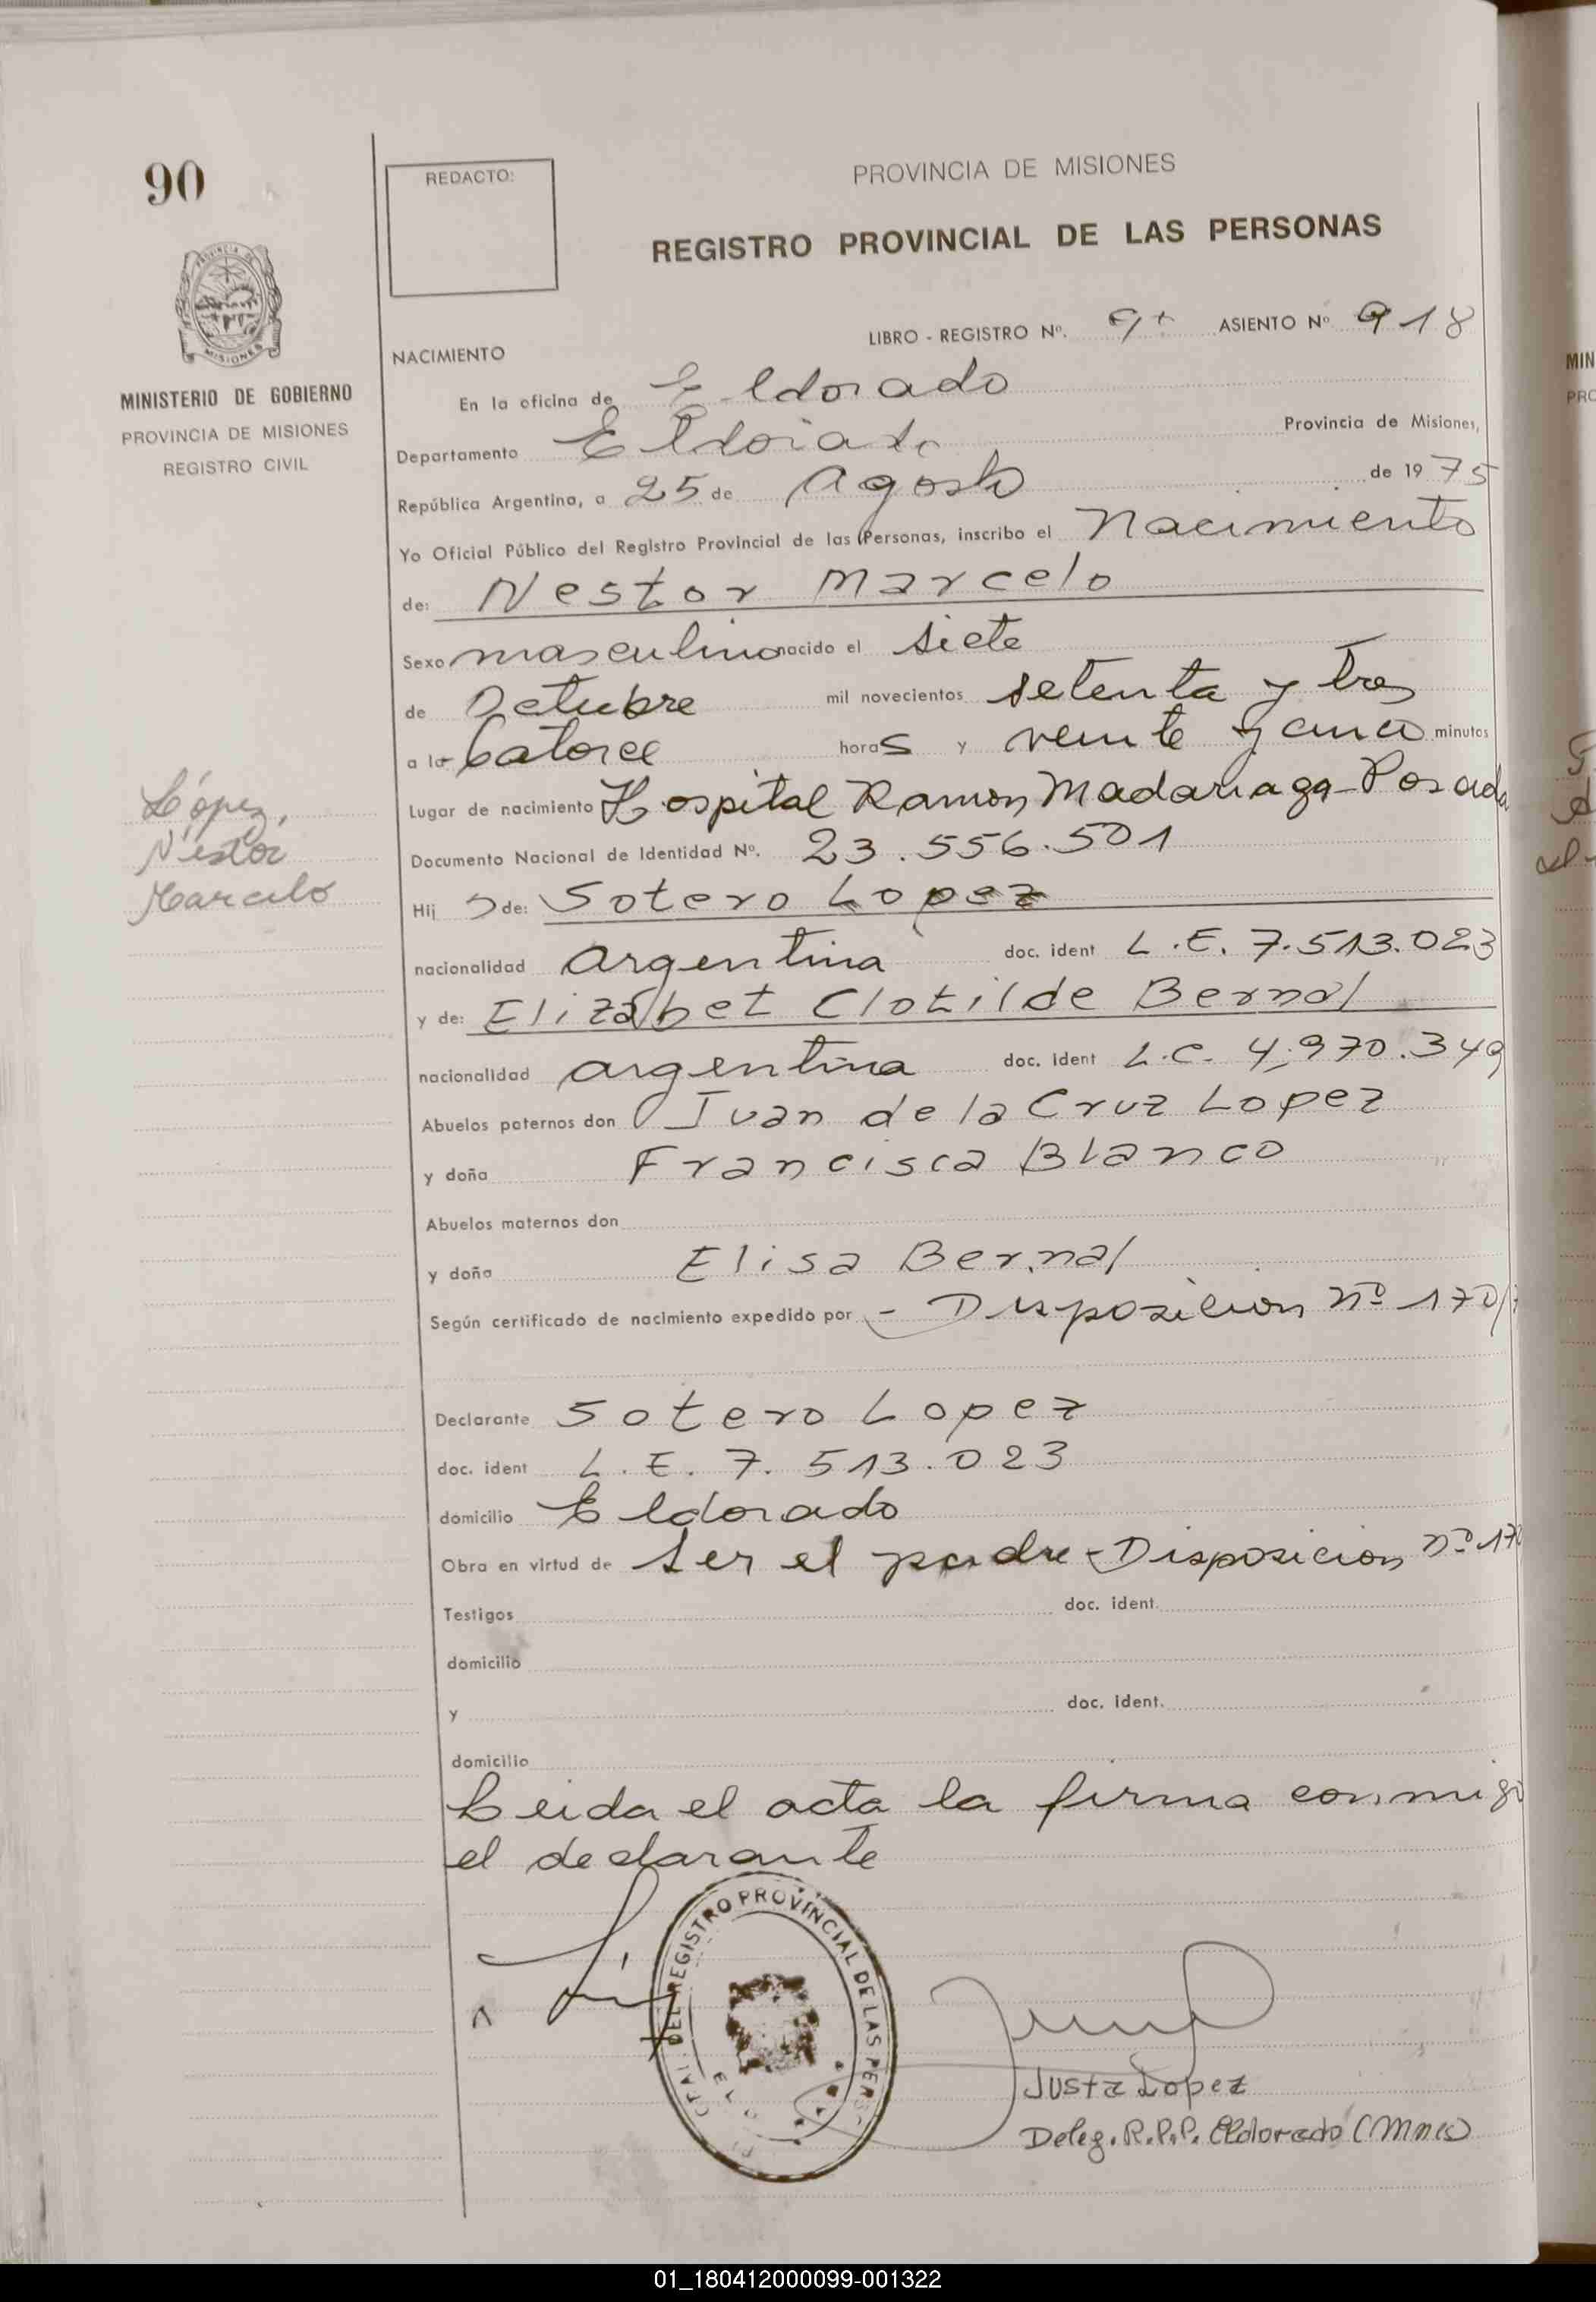 90
REDACTO:
PROVINCIA DE MISIONES
REGISTRO PROVINCIAL DE LAS PERSONAS
PROVINCIA DE
MISIONES
MINISTERIO DE GOBIERNO
PROVINCIA DE MISIONES
REGISTRO CIVIL
LIBRO - REGISTRO Nº. ASIENTO Nº 918
NACIMIENTO
En la oficina de Eldorado
Departamento Eldorado Provincia de Misiones,
República Argentina, a 25 de Agosto de 1975
Yo Oficial Público del Registro Provincial de las Personas, inscribo el Nacimiento
de: Nestor Marcelo
Sexo masculino nacido el siete
de Octubre mil novecientos setenta y tres
a la Catorce horas y veinte y cinco minutos
Lugar de nacimiento Hospital Ramon Madariaga - Posada
Documento Nacional de Identidad Nº. 23.556.501
López,
Néstor
Marcelo
Hij o de: Sotero Lopez
nacionalidad argentina doc. ident L.E. 7.513.023
y de: Elizabet Clotilde Bernal
nacionalidad argentina doc. ident L.C. 4.970.349
Abuelos paternos don Juan de la Cruz Lopez
y doña Francisca Blanco
Abuelos maternos don
y doña Elisa Bernal
Según certificado de nacimiento expedido por - Disposicion nº 170/
Declarante Sotero Lopez
doc. ident L.E. 7.513.023
domicilio Eldorado
Obra en virtud de ser el padre - Disposicion nº 170
Testigos doc. ident.
domicilio
y doc. ident.
domicilio
Leida el acta la firma conmigo
el declarante
DEL REGISTRO PROVINCIAL DE LAS PERS
Justa Lopez
Deleg. R.P.P. Eldorado (Mnes)
MIN
PRO
01_180412000099-001322